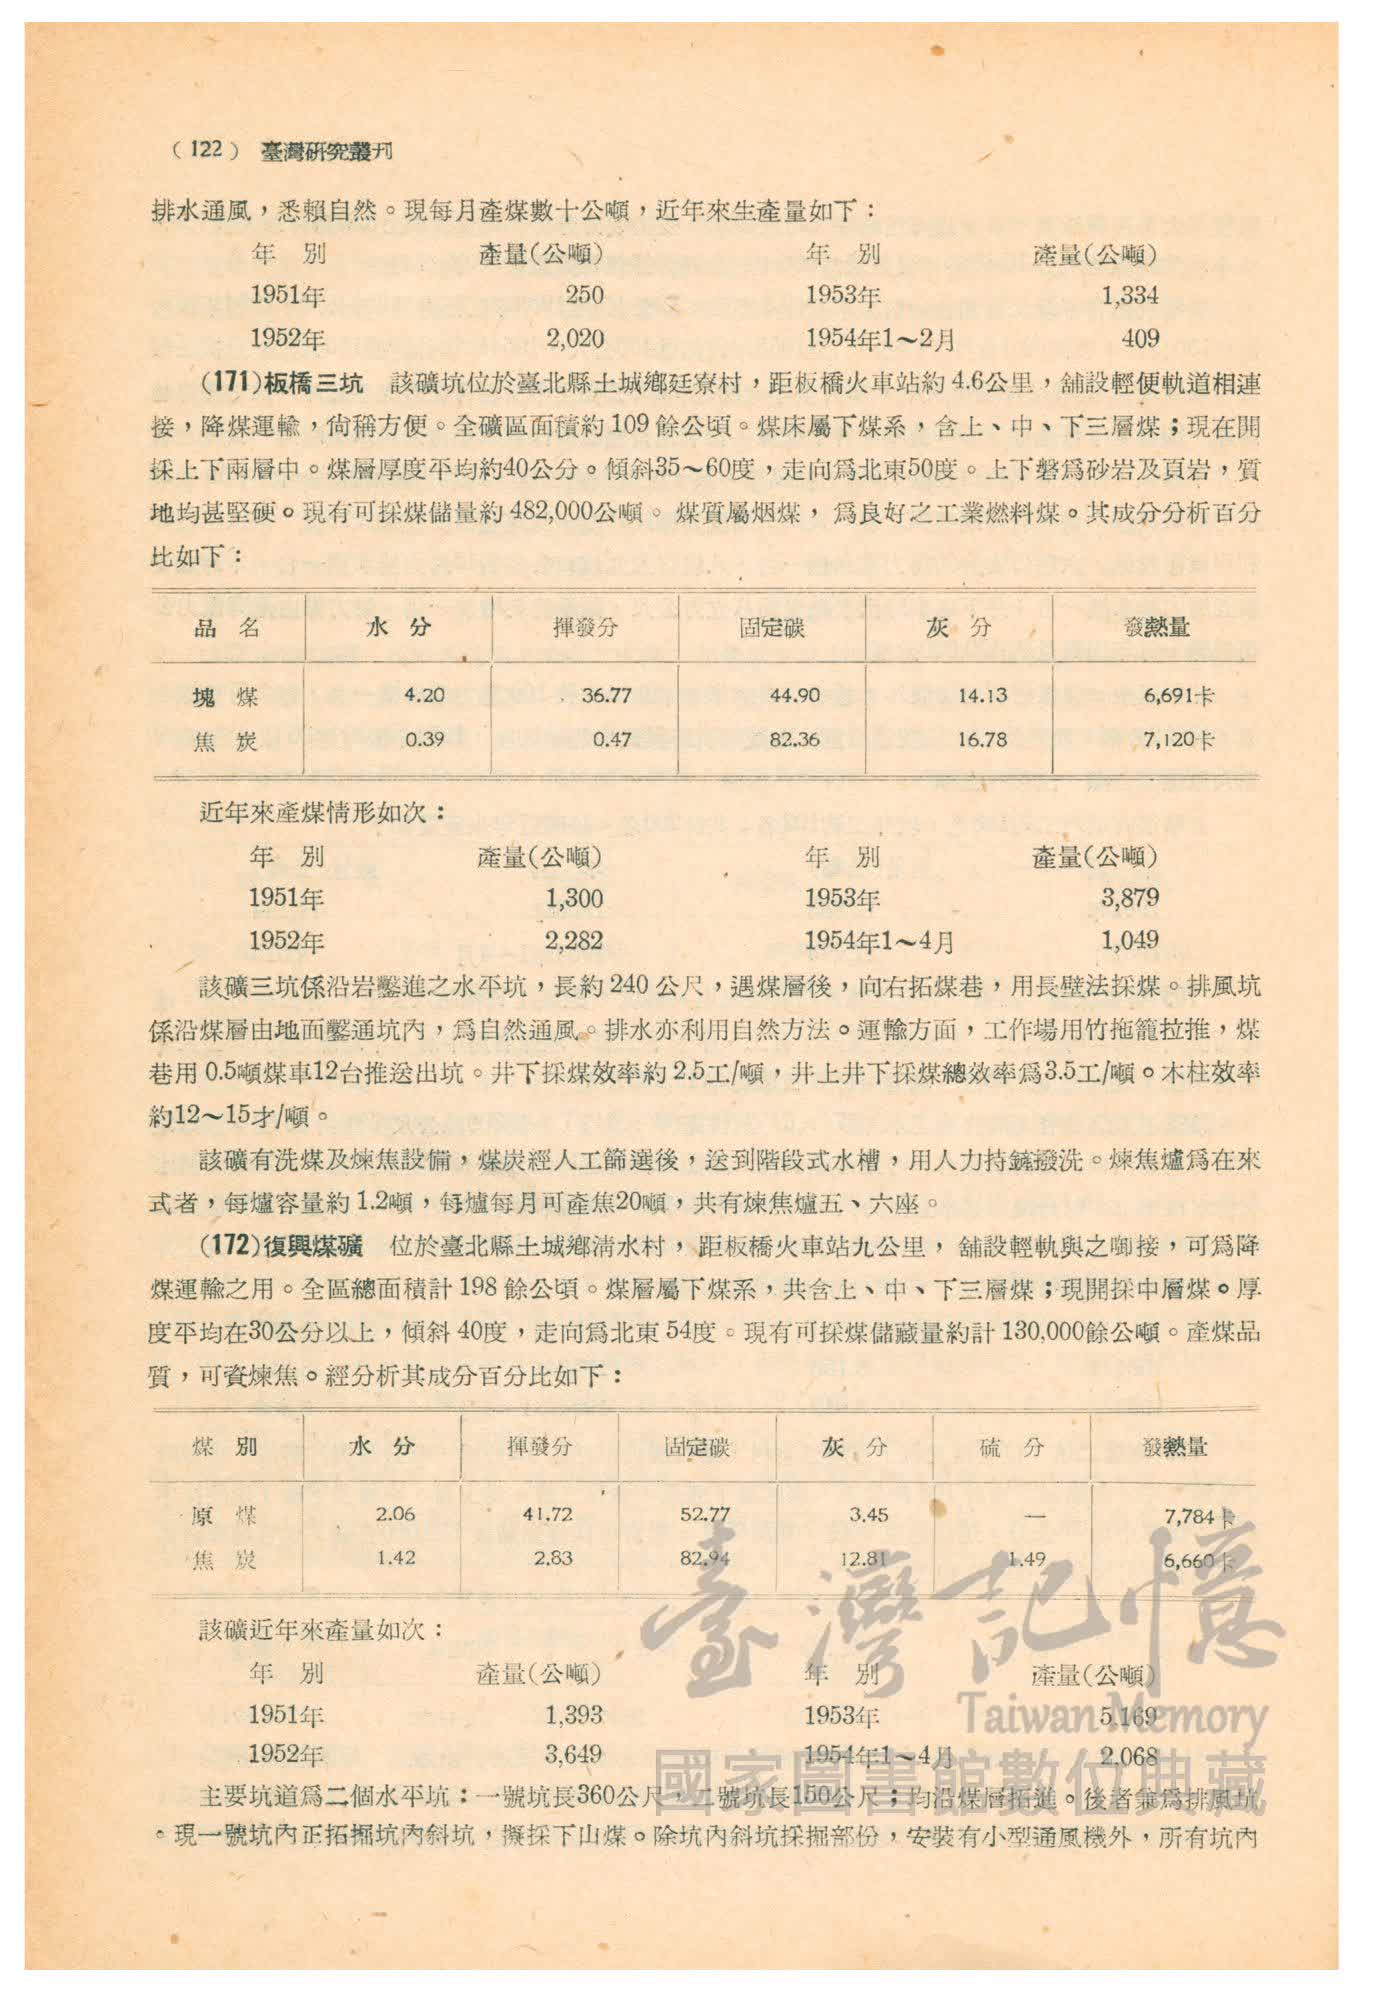 （122） 臺灣研究叢刊
排水通風，悉賴自然。現每月產煤數十公噸，近年來生產量如下：
年 別 產量(公噸) 年 別 產量(公噸)
1951年 250 1953年 1,334
1952年 2,020 1954年1～2月 409
(171)板橋三坑 該礦坑位於臺北縣土城鄉廷寮村，距板橋火車站約4.6公里，舖設輕便軌道相連
接，降煤運輸，尙稱方便。全礦區面積約109餘公頃。煤床屬下煤系，含上、中、下三層煤；現在開
採上下兩層中。煤層厚度平均約40公分。傾斜35～60度，走向爲北東50度。上下磐爲砂岩及頁岩，質
地均甚堅硬。現有可採煤儲量約482,000公噸。煤質屬烟煤，爲良好之工業燃料煤。其成分分析百分
比如下：
品 名 水 分 揮發分 固定碳 灰 分 發熱量
塊 煤 4.20 36.77 44.90 14.13 6,691卡
焦 炭 0.39 0.47 82.36 16.78 7,120卡
近年來產煤情形如次：
年 別 產量(公噸) 年 別 產量(公噸)
1951年 1,300 1953年 3,879
1952年 2,282 1954年1～4月 1,049
該礦三坑係沿岩鑿進之水平坑，長約240公尺，遇煤層後，向右拓煤巷，用長壁法採煤。排風坑
係沿煤層由地面鑿通坑內，爲自然通風。排水亦利用自然方法。運輸方面，工作場用竹拖籠拉推，煤
巷用0.5噸煤車12台推送出坑。井下採煤效率約2.5工/噸，井上井下採煤總效率爲3.5工/噸。木柱效率
約12～15才/噸。
該礦有洗煤及煉焦設備，煤炭經人工篩選後，送到階段式水槽，用人力持鏟撥洗。煉焦爐爲在來
式者，每爐容量約1.2噸，每爐每月可產焦20噸，共有煉焦爐五、六座。
(172)復興煤礦 位於臺北縣土城鄉淸水村，距板橋火車站九公里，舖設輕軌與之啣接，可爲降
煤運輸之用。全區總面積計198餘公頃。煤層屬下煤系，共含上、中、下三層煤；現開採中層煤。厚
度平均在30公分以上，傾斜40度，走向爲北東54度。現有可採煤儲藏量約計130,000餘公噸。產煤品
質，可資煉焦。經分析其成分百分比如下：
煤 別 水 分 揮發分 固定碳 灰 分 硫 分 發熱量
原 煤 2.06 41.72 52.77 3.45 — 7,784卡
焦 炭 1.42 2.83 82.94 12.81 1.49 6,660卡
該礦近年來產量如次：
年 別 產量(公噸) 年 別 產量(公噸)
1951年 1,393 1953年 5,169
1952年 3,649 1954年1～4月 2,068
主要坑道爲二個水平坑：一號坑長360公尺，二號坑長150公尺；均沿煤層拓進。後者兼爲排風坑
。現一號坑內正拓掘坑內斜坑，擬採下山煤。除坑內斜坑採掘部份，安裝有小型通風機外，所有坑內
臺灣記憶
Taiwan Memory
國家圖書館數位典藏